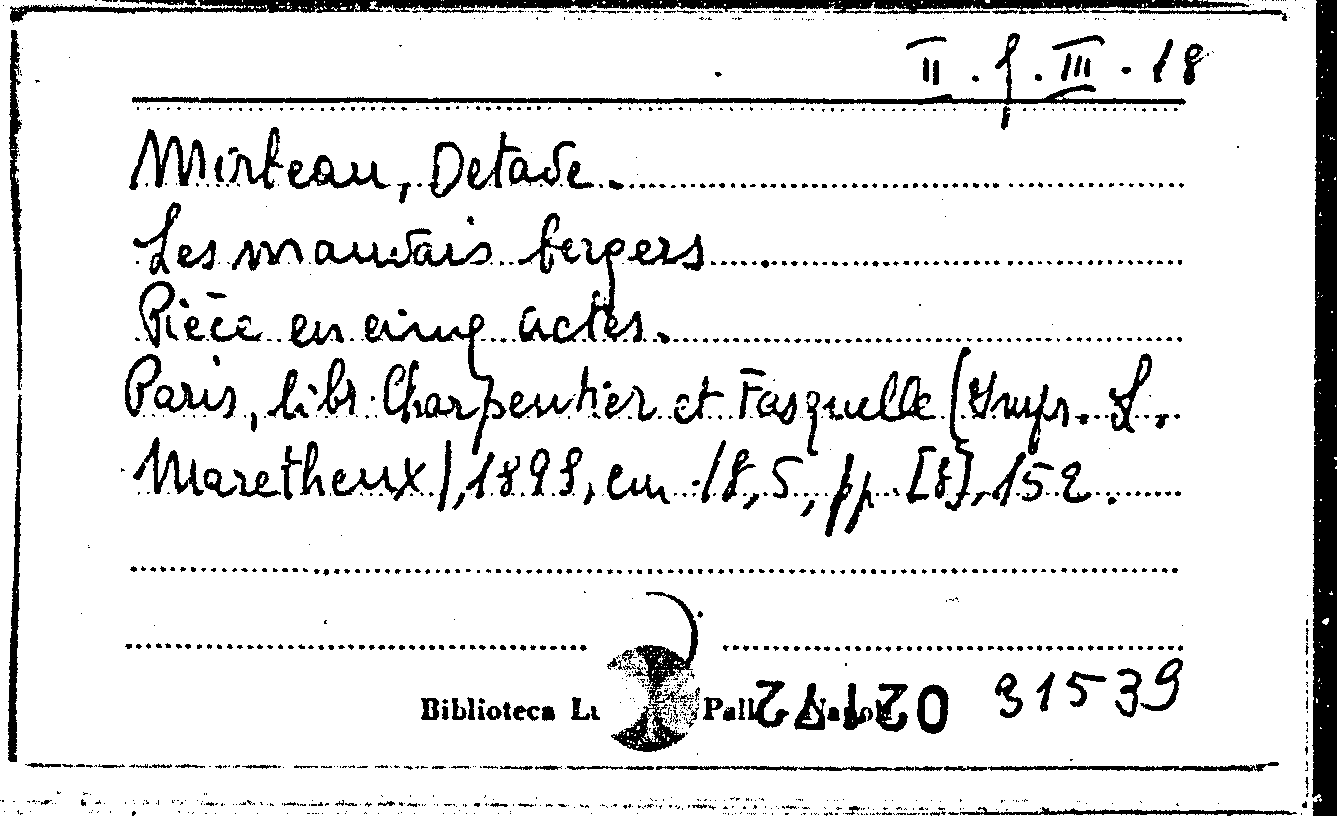 II . f . III . 18
Mirbeau, Octave.
Les mauvais bergers
Pièce en cinq actes.
Paris, libr. Charpentier et Fasquelle (Impr. L.
Maretheux), 1898, cm. 18,5, pp. [8], 152.
Biblioteca Lu Pall Napoli 021172 31539